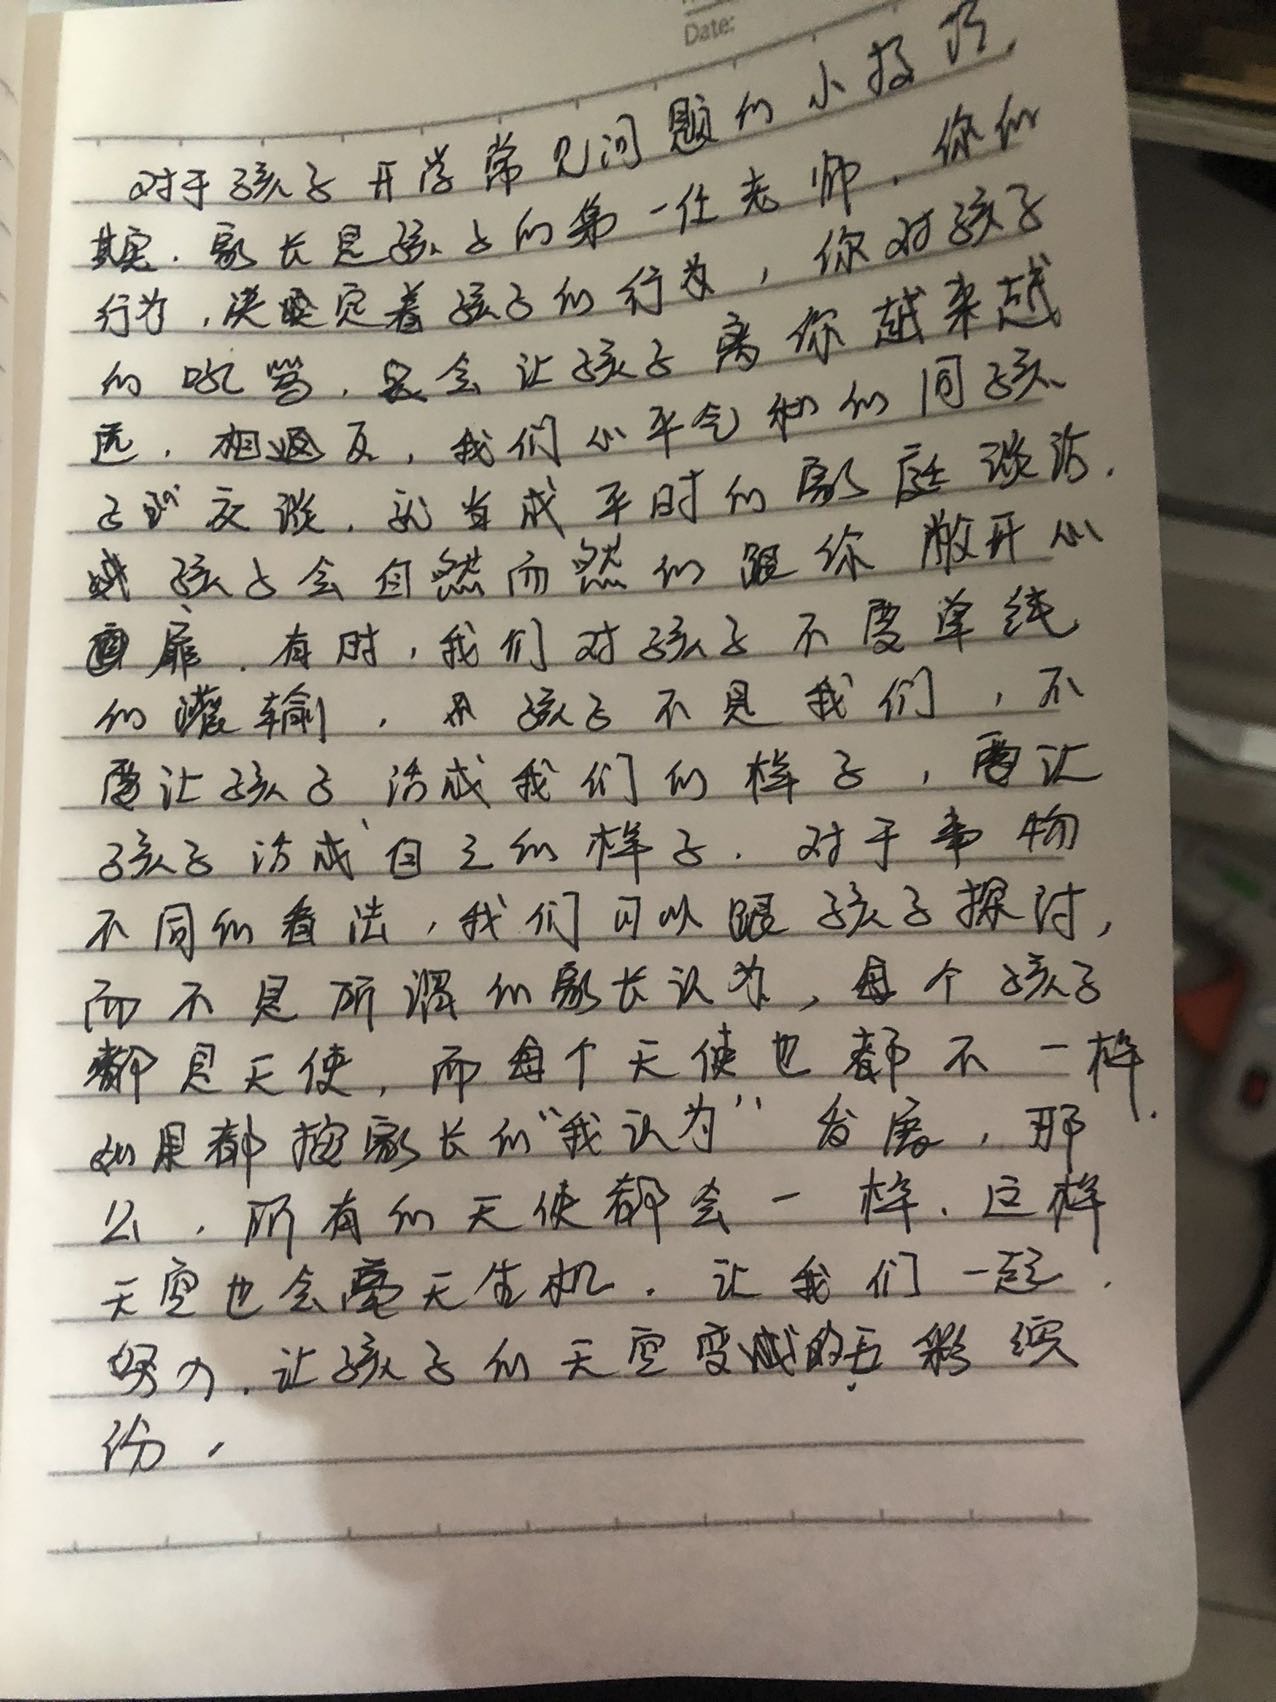 Date:
对于孩子开学常见问题的小技巧,
其实.家长是孩子的第一任老师.你的
行为,决定着孩子的行为,你对孩子
的吼骂.只会让孩子离你越来越
远.相反,我们心平气和的同孩
子交谈.就当成平时的家庭谈话.
孩子会自然而然的跟你敞开心
扉.有时,我们对孩子不要单纯
的灌输,孩子不是我们,不
要让孩子活成我们的样子,要让
孩子活成自己的样子.对于事物
不同的看法,我们可以跟孩子探讨,
而不是所谓的家长认为,每个孩子
都是天使,而每个天使也都不一样.
如果都按家长的“我认为”发展,那
么,所有的天使都会一样.这样
天空也会毫无生机.让我们一起.
努力.让孩子的天空变的五彩缤
纷.